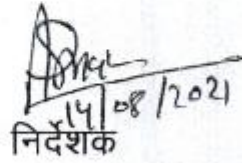 14/08/2021
निर्देशक